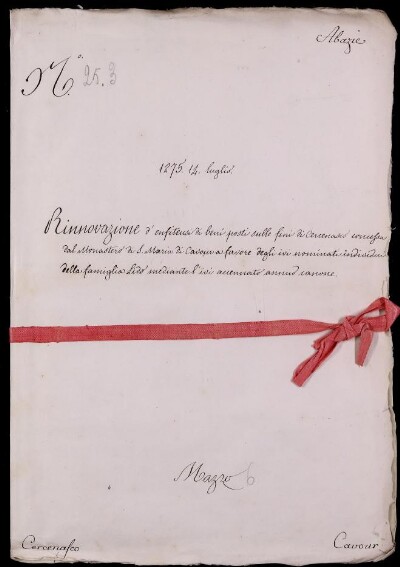 Abazie
N.° 25.3
1275. 14. luglio.
Rinnovazione d'enfiteusi di beni posti sulle fini di Cercenasco concessa
dal Monastero di S. Maria di Cavour a favore degli ivi nominati individui
della famiglia mediante l'ivi accennato annuo canone.
Mazzo 6
Cercenasco
Cavour